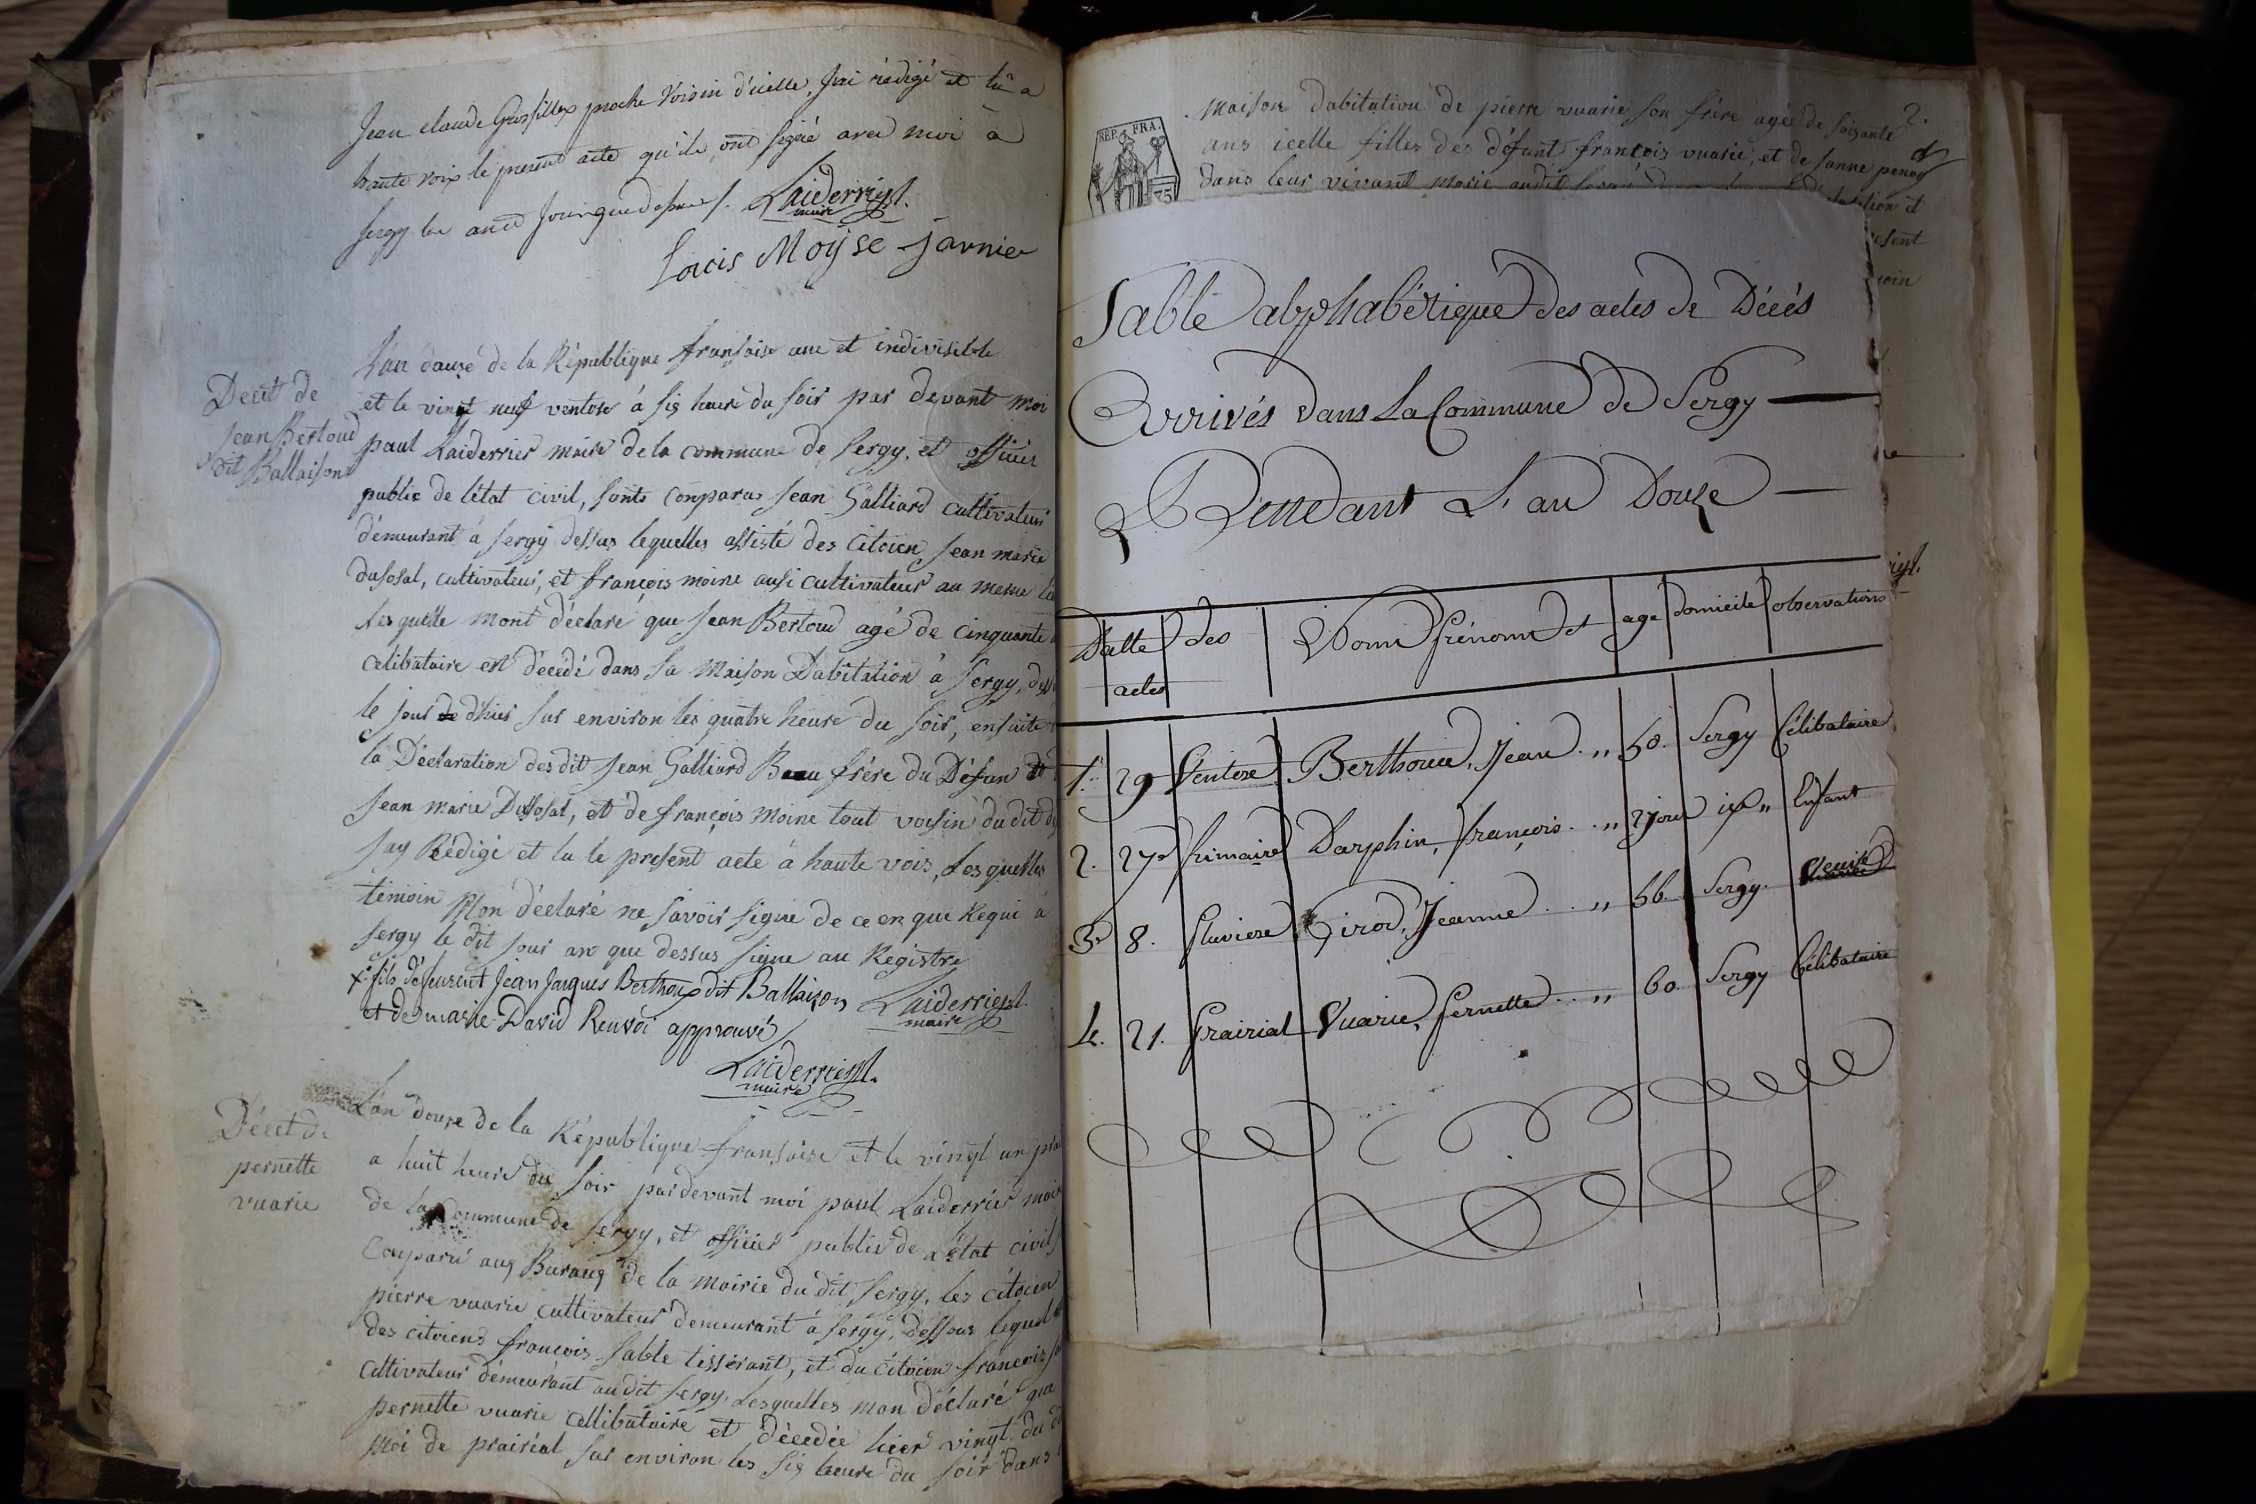 Jean claude Grosfillex proche Voisin d'icelle, J'ai rédigé et lû a
haute voix le present acte qu'ils ont signé avec moi à
sergy les an et jour que dessus /. Laiderrier
maire
Louis Moÿse jarnier
Decet de
jean Bertoud
dit Ballaison
L'an douze de la République fransaise une et indivisible
et le vingt neuf ventose à sis heure du soir par devant moi
paul Laiderrier maire de la commune de sergy, et officier
public de l'état civil, sonts conparus jean Galliard cultivateur
démeurant à sergy dessus lequelles assisté des citoien jean marie
dufosal, cultivateur, et françois moine ausi cultivateur au meme
Lesquelle mont déclaré que jean Bertoud agé de cinquante
celibataire est décédé dans sa maison Dabitation à sergy,
le jour de d'hier sur environ les quatre heure du soir, ensuite
la Déclaration des dit jean Galliard Beau frére du Défun
jean marie Dufosal, et de françois moine tout voisin du dit
jay Rédigé et lu le present acte à haute vois, Lesquelles
témoin Mon déclaré ne savoir signe de ce en que Requi à
sergy le dit jour an que dessus signe au Registre
x fils de feu Jean Jacques Berthoux dit Ballaison Laiderrier
et de marie David Renvoi approuvé maire
Laiderrier
maire
Décet de
pernette
vuarie
L'an douze de la République fransaise et le vingt un
a huit heure du soir pardevant moi paul Laiderrier
de la Commune de sergy, et officier public de L'état civil
Conparu aux Buraux de la mairie du dit sergy, les citoien
pierre vuarie cultivateur demeurant à sergy, dessous
des citoiens françois sable tisserant, et du citoien françois
Cultivateur démeurant audit sergy, Lesquelles mon déclaré que
pernette vuarie cellibataire et décedée hier vingt du
moi de prairéal sur environ les sis heure du soir dans
2.
REP. FRA.
75
maison dabitation de pierre vuarie son frére agée de soisante
ans icelle filles des défunt françois vuarie, et de janne
dans leur vivant
Table alphabétique des actes de Décés
Arrivés dans La Commune de Sergy
Pendant L'an Douze
Datte des Nom Prénom et age domicile observations
actes
1. 29 Ventose Berthoud, Jean . ,, 50. Sergy Célibataire
2. 27 frimaire Darphin, françois . ,, Enfant
3 8. Pluviose Girod, Jeanne . . ,, 56. Sergy. Veuve
4. 21. Prairial Vuarie, Pernette . . ,, 60. Sergy Célibataire